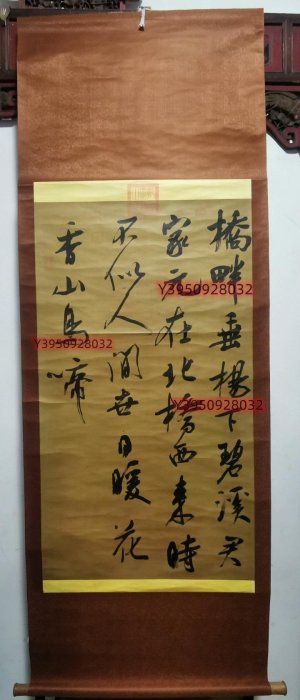 橋畔垂楊下碧溪君
家元在北橋西來時
不似人間世日暖花
香山鳥啼
Y3950928032
Y3950928032
Y3950928032